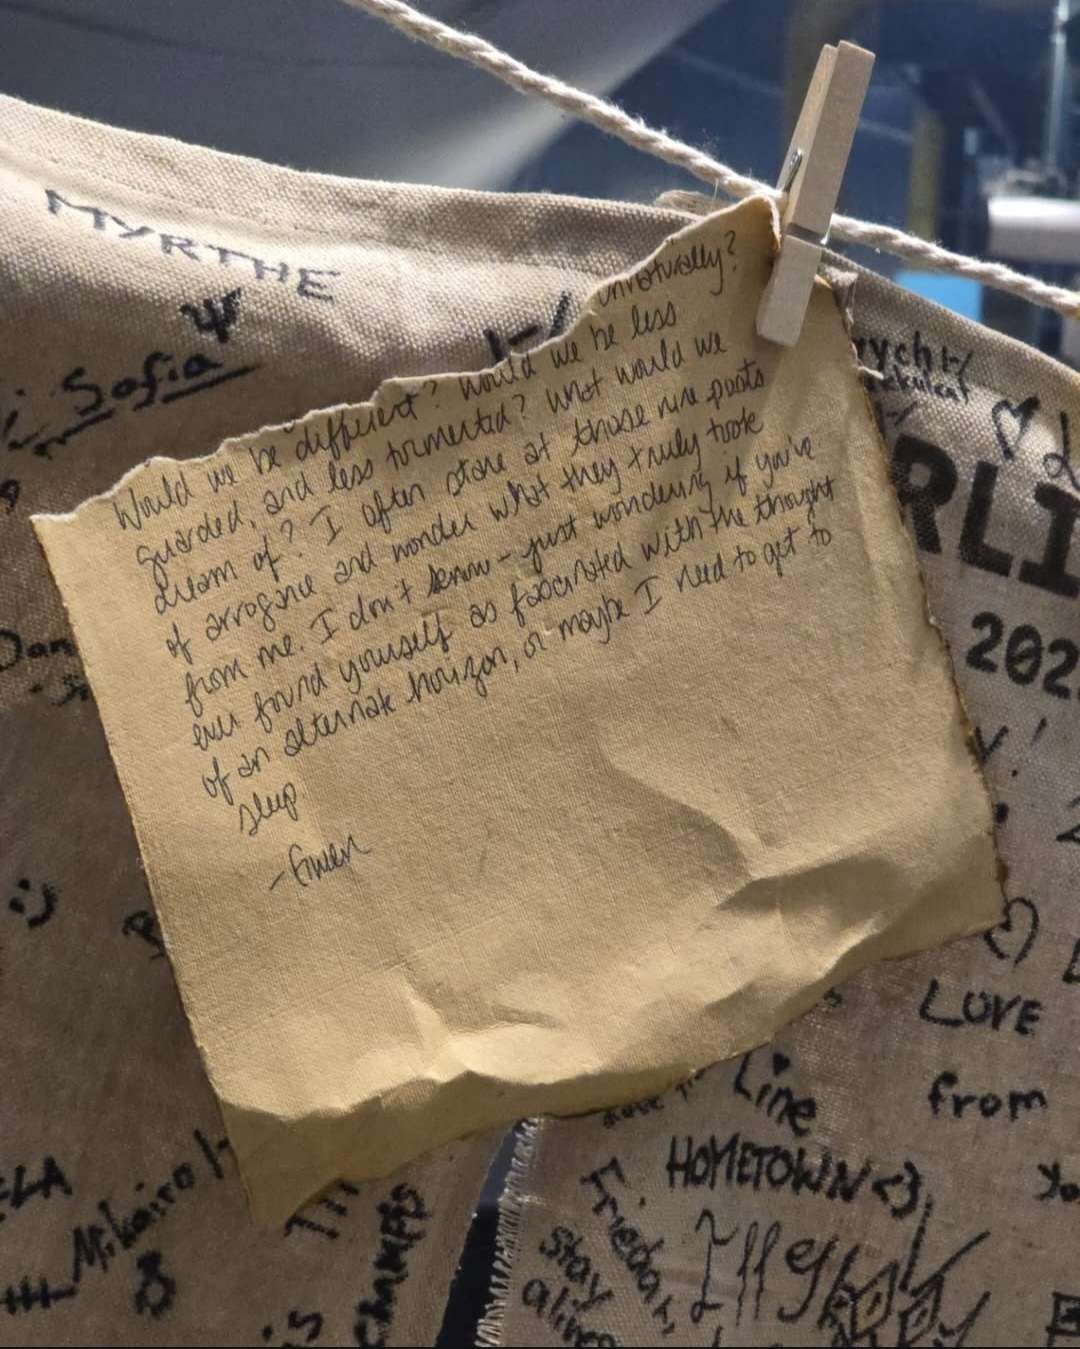 MYRTHE
Sofia
unnaturally?
Would we be different? Would we be less
guarded, and less tormented? What would we
dream of? I often stare at those nine posts
of arrogance and wonder what they truly took
from me. I don't know - just wondering if you've
ever found yourself as fascinated with the thought
of an alternate horizon, or maybe I need to get to
sleep
-Gwen
RLI
202
Dan
:)
LOVE
from
Line
HOMETOWN <3
Mikairo
CHAMPS
Stay
alive